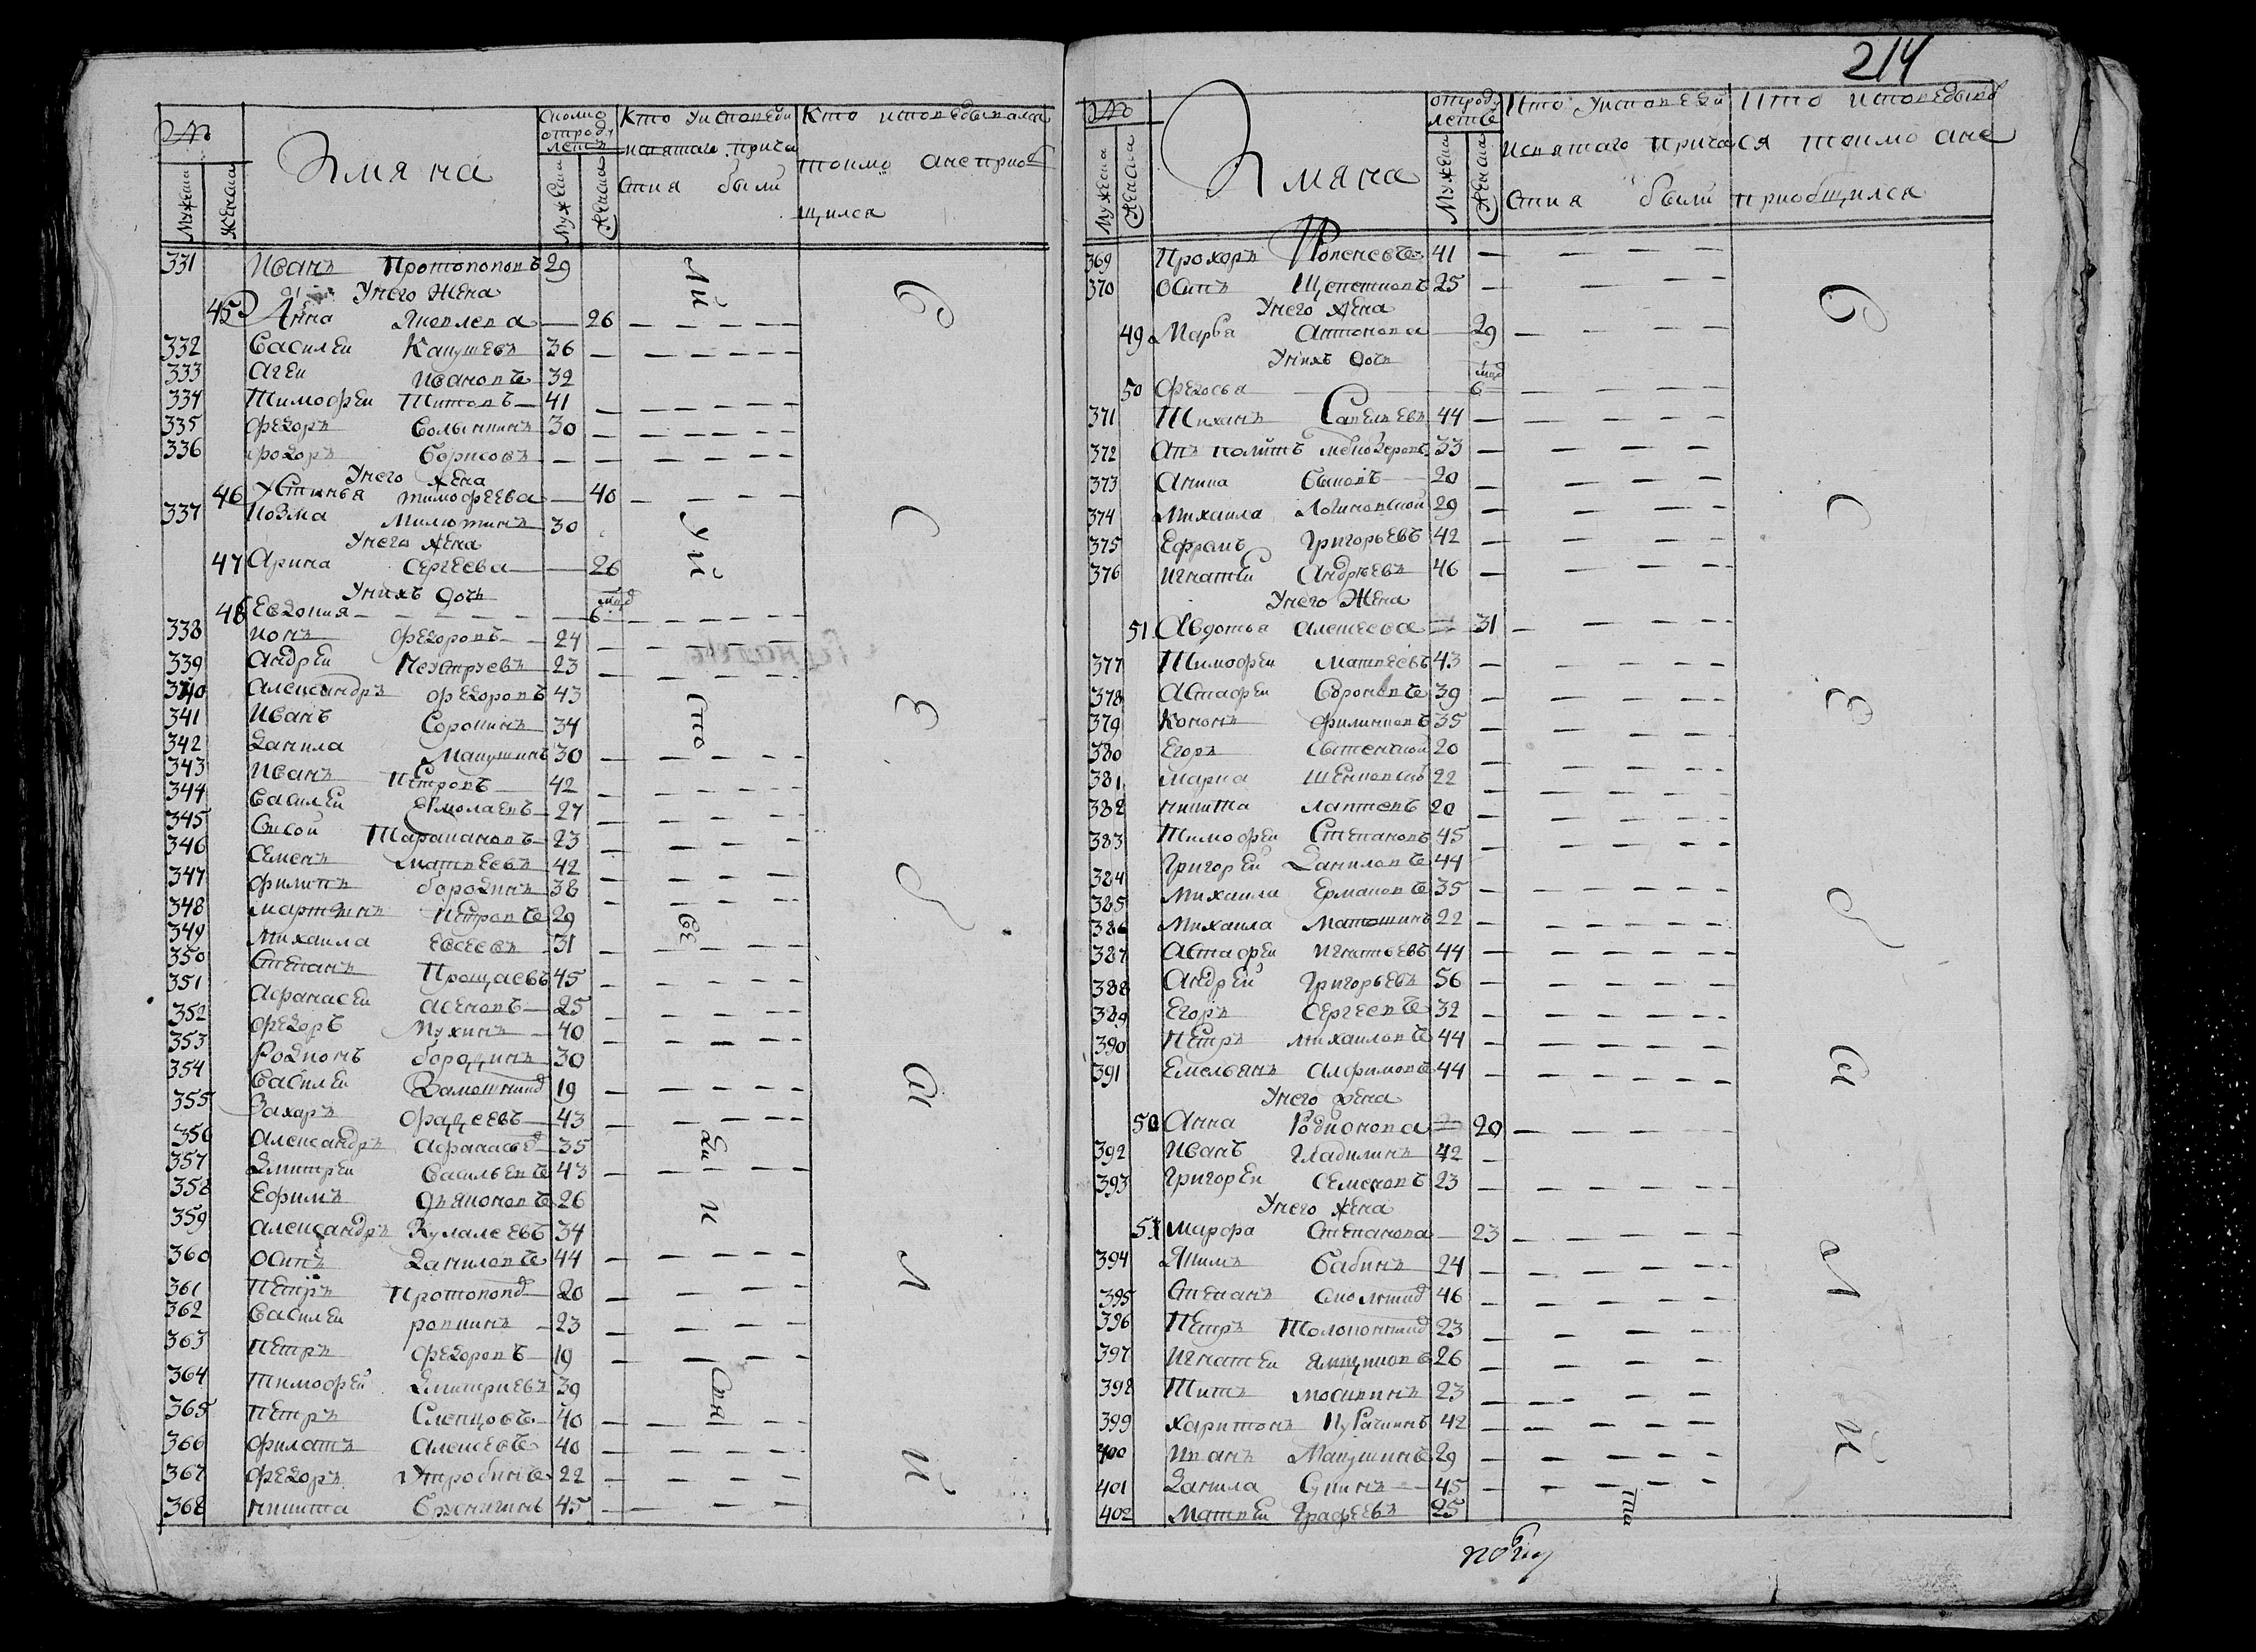 №
Мужеска
Женска
Имяна
Сколко
отрод.
летъ
Мужеска
Женска
Кто уисповеди
исвятаго прича
стия были
Кто исповедывался
токмо анеприоб
щился
331 Иванъ Протопоповъ 29
Унего Жена
45 Анна Яковлева — 26
332 Василеи Капушевъ 36
333 Агеи Ивановъ 32
334 Тимофеи Титовъ 41
335 Федоръ Волынкинъ 30
336 Федоръ Борисовъ
Унего жена
46 Устинья Тимофеева — 40
337 Козма Милютинъ 30
Унего жена
47 Арина Сергеева — 26
Унихъ дочь
48 Евдокия млд 6
338 Ионъ Федоровъ 24
339 Андреи 23
340 Александръ Федоровъ 43
341 Иванъ Сорокинъ 34
342 Данила Макушинъ 30
343 Иванъ Петровъ 42
344 Василеи Ермолаевъ 27
345 Сысои Таракановъ 23
346 Семенъ Матвеевъ 42
347 Филипъ Бородинъ 38
348 Мартынъ Петровъ 29
349 Михаила Евсеевъ 31
350 Степанъ Прощаевъ 45
351 Афанасеи Асеновъ 25
352 Федоръ Мухинъ 40
353 Родионъ Бородинъ 30
354 Василеи 19
355 Захаръ Фадеевъ 43
356 Александръ Афанасьев 35
357 Дмитреи Васильевъ 43
358 Ефимъ Дьяконовъ 26
359 Александръ Кулалеевъ 34
360 Осипъ Даниловъ 44
361 Петръ Протопопо 20
362 Василеи 23
363 Петръ Федоровъ 19
364 Тимофеи Дмитриевъ 39
365 Петръ Слепцовъ 40
366 Филатъ Алексевъ 40
367 Федоръ Утробинъ 22
368 Никита 45
214
№
Мужеска
Женска
Имяна
отрод.
летъ
Мужеска
Женска
Кто уисповеди
исвятаго прича
стия были
Кто исповедывал
ся токмо ане
приобщился
369 Прохоръ 41
370 Осипъ Щепеткинъ 25
Унего жена
49 Марья Антонова — 29
Унихъ дочь
50 Федосья млд 6
371 Тиханъ Савельевъ 44
372 33
373 Аника Быковъ 20
374 Михаила Логиновской 29
375 Ефрамъ Григорьевъ 42
376 Игнатеи Андреевъ 46
Унего Жена
51 Авдотья Алексеева — 31
377 Тимофеи Матвеевъ 43
378 Астафеи 39
379 Кононъ Филиповъ 35
380 Егоръ 20
381 Марка 22
382 Никита Лаптевъ 20
383 Тимофеи Степановъ 45
384 Григореи Даниловъ 44
385 Михаила Ермаковъ 35
386 Михаила Матошинъ 22
387 Астафеи Игнатьевъ 44
388 Андреи Григорьевъ 56
389 Егоръ Сергеевъ 32
390 Петръ Михаиловъ 44
391 Емельянъ Алфимовъ 44
Унего жена
52 Анна Родионова — 20
392 Иванъ Гладилинъ 42
393 Григореи Семеновъ 23
Унего жена
53 Марфа Степанова — 23
394 Якимъ Бабинъ 24
395 Степанъ 46
396 Петръ Толоконник 23
397 Игнатеи Ямщиковъ 26
398 Титъ Москвинъ 23
399 Харитонъ Пугачинъ 42
400 Иванъ Макушинъ 29
401 Данила Сукинъ 45
402 Матвеи Фадеевъ 25